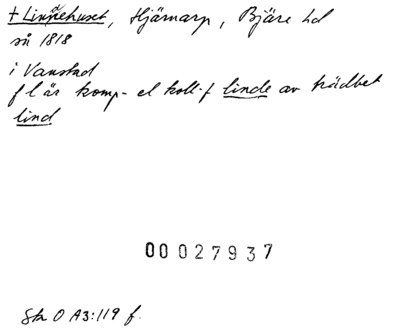 + Linnehuset, Hjärnarp, Bjäre hd
så 1818
i Vanstad
f l är komp- el koll-f linde av trädbet
lind
00027937
Sk O A3:119 f.